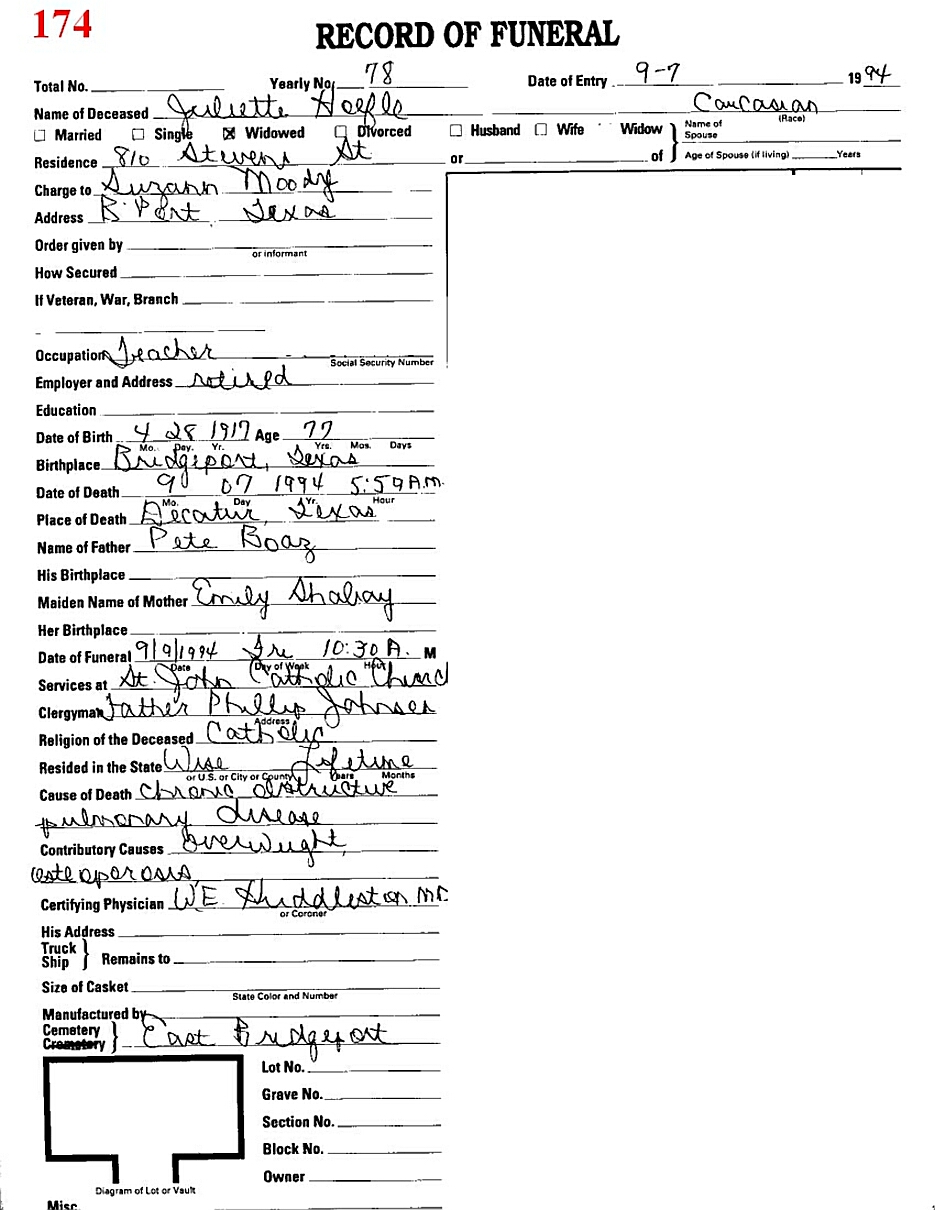 174
RECORD OF FUNERAL
Total No. Yearly No. 78 Date of Entry 9-7 1994
Name of Deceased Juliette Hoefle Caucasian
(Race)
☐ Married ☐ Single ☒ Widowed ☐ Divorced ☐ Husband ☐ Wife Widow } Name of Spouse
Residence 810 Stevens St or of } Age of Spouse (if living) Years
Charge to Suzann Moody
Address B'Port Texas
Order given by
or informant
How Secured
If Veteran, War, Branch
Occupation Teacher
Social Security Number
Employer and Address retired
Education
Date of Birth 4 28 1917 Age 77
Mo. Day. Yr. Yrs. Mos. Days
Birthplace Bridgeport, Texas
Date of Death 9 07 1994 5:59 A.M.
Mo. Day Yr. Hour
Place of Death Decatur, Texas
Name of Father Pete Boaz
His Birthplace
Maiden Name of Mother Emily
Her Birthplace
Date of Funeral 9/9/1994 Fri 10:30 A. M
Date Day of Week Hour
Services at St. John Catholic Church
Clergyman Father Phillip Johnson
Address
Religion of the Deceased Catholic
Resided in the State Wise Lifetime
or U.S. or City or County Years Months
Cause of Death Chronic obstructive
pulmonary disease
Contributory Causes overweight,
osteoporosis
Certifying Physician W.E. Huddleston MD
or Coroner
His Address
Truck
Ship } Remains to
Size of Casket
State Color and Number
Manufactured by
Cemetery
Crematory } East Bridgeport
Lot No.
Grave No.
Section No.
Block No.
Owner
Diagram of Lot or Vault
Misc.